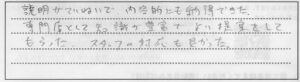 説明がていねいで内容的にも納得できた。
専門店として知識が豊富で、よい提案をして
もらった。スタッフの対応も良かった。